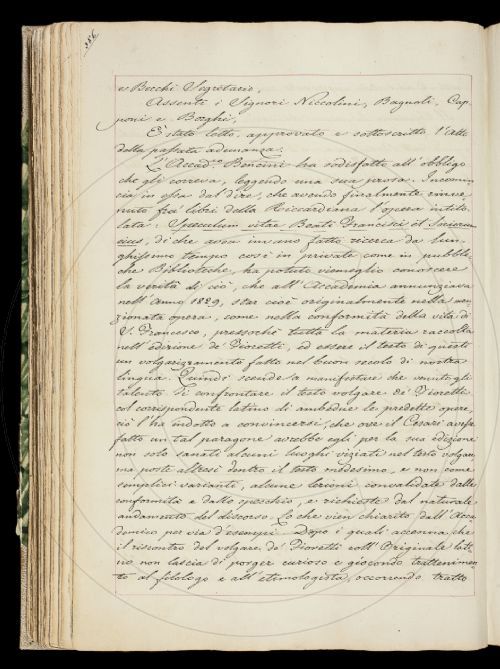 386
e Becchi Segretario.
Assenti i Signori Niccolini, Bagnoli, Cap-
poni e Borghi.
È stato letto, approvato e sottoscritto l'atto
della passata adunanza.
L'Accad.co Bencini ha sodisfatto all'obbligo
che gli correva, leggendo una sua prosa. Incomin-
cia in essa dal dire, che avendo finalmente rinve-
nuto fra libri della Riccardiana l'opera intito-
lata: Speculum vitae Beati Francisci et Sociorum
eius, di che avea invano fatto ricerca da lun-
ghissimo tempo così in private come in pubbli-
che Biblioteche, ha potuto viemeglio conoscere
la verità di ciò, che all'Accademia annunziava
nell'Anno 1829, star cioè originalmente nella men-
zionata opera, come nella conformità della vita di
S. Francesco, pressochè tutta la materia raccolta
nell'edizione de' Fioretti, ed essere il testo di questi
un volgarizzamento fatto nel buon secolo di nostra
lingua. Quindi scende a manifestare che venutogli
talento di confrontare il testo volgare de' Fioretti
col corrispondente latino di ambedue le predette opere,
ciò l'ha indotto a convincersi, che ove il Cesari avesse
fatto un tal paragone avrebbe egli per la sua edizione
non solo sanati alcuni luoghi viziati nel testo volgare,
ma poste altresì dentro il testo medesimo, e non come
semplici varianti, alcune lezioni convalidate dalle
conformità e dallo specchio, e richieste dal naturale
andamento del discorso. Lo che vien chiarito dall'Acca-
demico per via d'esempi. Dopo i quali accenna, che
il riscontro del volgare de' Fioretti coll'Originale lati-
no non lascia di porger curioso e giocondo trattenimen-
to al filologo e all'etimologista, occorrendo tratto